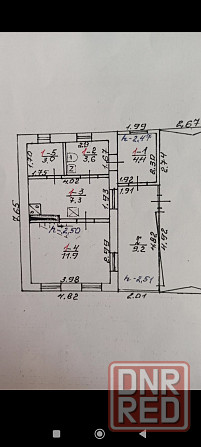 1.99
h-2.47
2.67
1-5
3.0
2.0
1-2
3.6
1-1
4.4
1.70
1.67
2.30
2.74
1.75
4.02
1.92
1.91
1-3
7.3
1.93
7.65
h-2.50
1-4
11.9
2.99
I
9.2
4.82
4.92
3.98
4.82
h-2.51
2.01
DNR
RED